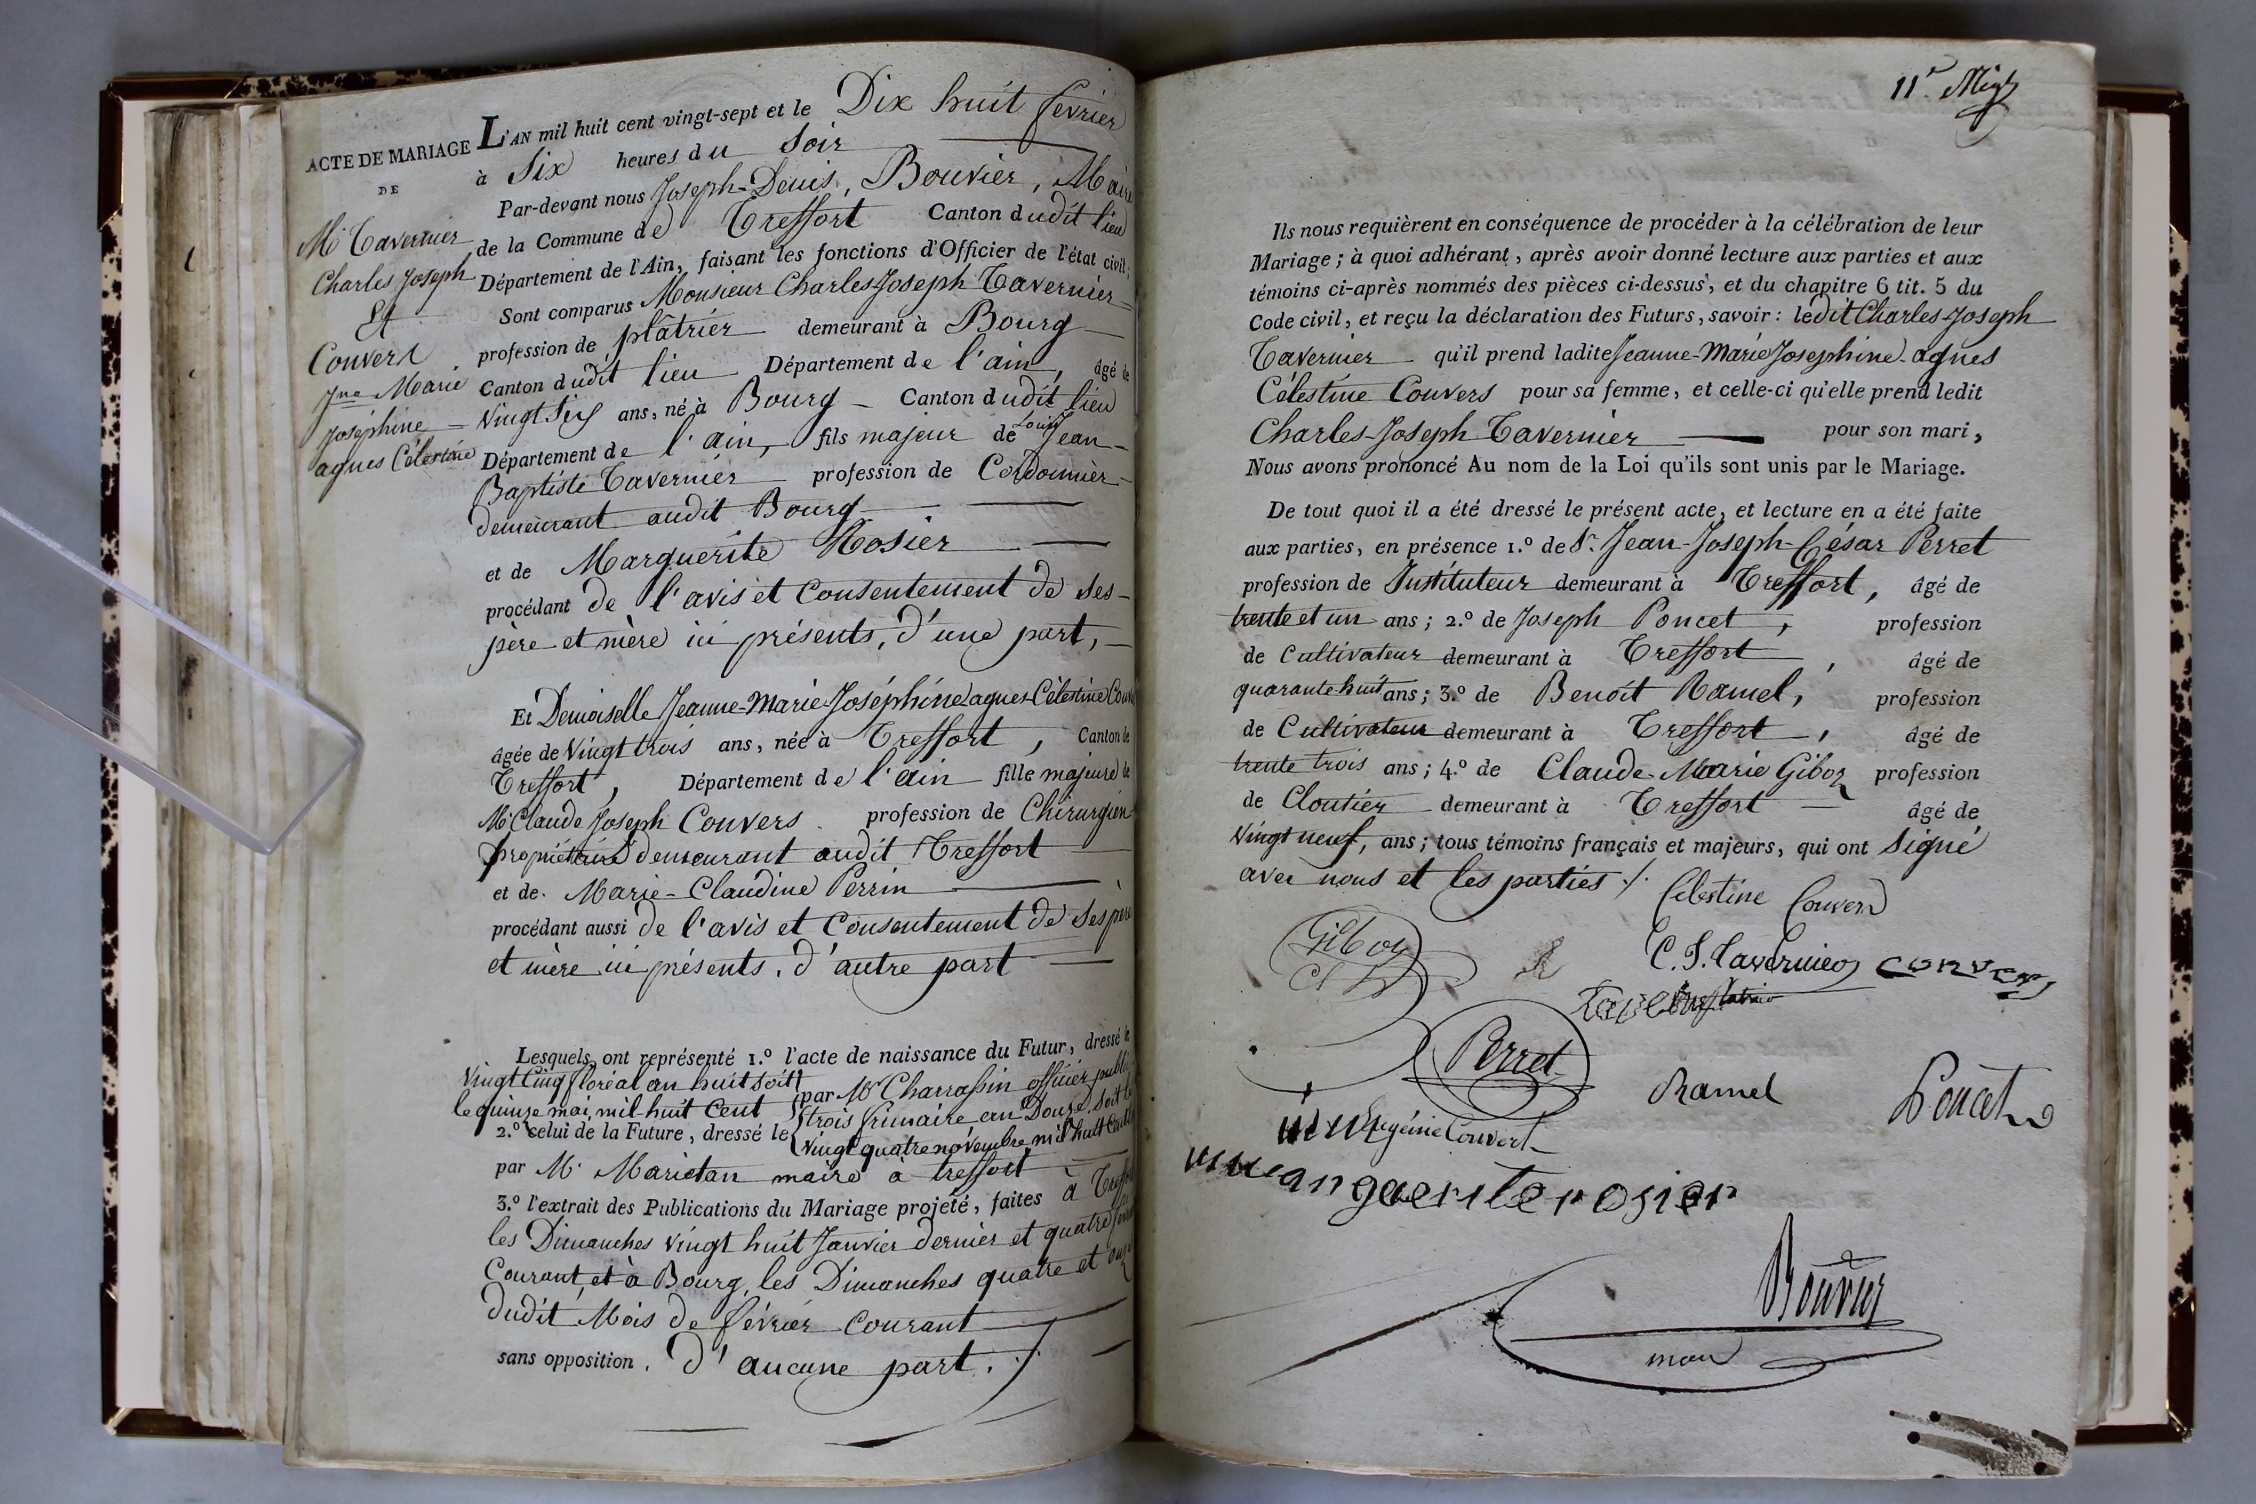 ACTE DE MARIAGE
DE
Mr. Tavernier
Charles Joseph
Et
Couvert
Jne Marie
Joséphine
agnes Célestine
L'AN mil huit cent vingt-sept et le Dix huit février
à Six heures du Soir
Par-devant nous Joseph-Denis, Bouvier, Maire
de la Commune de Treffort Canton dudit lieu
Département de l'Ain, faisant les fonctions d'Officier de l'état civil;
Sont comparus Monsieur Charles Joseph Tavernier
profession de plâtrier demeurant à Bourg
Canton dudit lieu Département de l'ain, âgé de
Vingt Six ans, né à Bourg Canton dudit lieu
Département de l'ain, fils majeur de Louis Jean
Baptiste Tavernier profession de Cordonnier
demeurant audit Bourg
et de Marguerite Rosier
procédant de l'avis et Consentement de ses
père et mère ici présents, d'une part,
Et Demoiselle Jeanne-Marie Joséphine agnes Célestine
âgée de Vingt trois ans, née à Treffort, Canton de
Treffort, Département de l'ain fille majeure de
Mr. Claude Joseph Couvers profession de Chirurgien
propriétaire demeurant audit Treffort
et de Marie-Claudine Perrin
procédant aussi de l'avis et Consentement de Ses père
et mère ici présents, d'autre part
Lesquels ont représenté 1.º l'acte de naissance du Futur, dressé le
Vingt Cinq floréal an huit soit par Mr Charrassin officier public
le quinze mai mil huit Cent trois frimaire an Douze, Soit le
2.º celui de la Future, dressé le Vingt quatre novembre mil huit Cent
par Mr. Marietan maire à treffort
3.º l'extrait des Publications du Mariage projeté, faites à Treffort
les Dimanches Vingt huit Janvier dernier et quatre
Courant, et à Bourg, les Dimanches quatre et onze
dudit Mois de février Courant
sans opposition, d'aucune part ./
11e. Mge
Ils nous requièrent en conséquence de procéder à la célébration de leur
Mariage; à quoi adhérant, après avoir donné lecture aux parties et aux
témoins ci-après nommés des pièces ci-dessus, et du chapitre 6 tit. 5 du
Code civil, et reçu la déclaration des Futurs, savoir: ledit Charles-Joseph
Tavernier qu'il prend ladite Jeanne-Marie Josephine-agnes
Célestine Couvers pour sa femme, et celle-ci qu'elle prend ledit
Charles-Joseph Tavernier pour son mari,
Nous avons prononcé Au nom de la Loi qu'ils sont unis par le Mariage.
De tout quoi il a été dressé le présent acte, et lecture en a été faite
aux parties, en présence 1.º de Sr. Jean-Joseph-César Perret
profession de Instituteur demeurant à Treffort, âgé de
trente et un ans; 2.º de Joseph Poncet, profession
de Cultivateur demeurant à Treffort, âgé de
quarante huit ans; 3.º de Benoit Ramel, profession
de Cultivateur demeurant à Treffort, âgé de
trente trois ans; 4.º de Claude-Marie Giboz profession
de Cloutier demeurant à Treffort âgé de
Vingt neuf, ans; tous témoins français et majeurs, qui ont Signé
avec nous et les parties ./.
Celestine Couvers
Giboz
C. J. Tavernier Convers
Perret
Ramel
Poncet
Eugénie Couvert
marguerite rosier
Bouvier